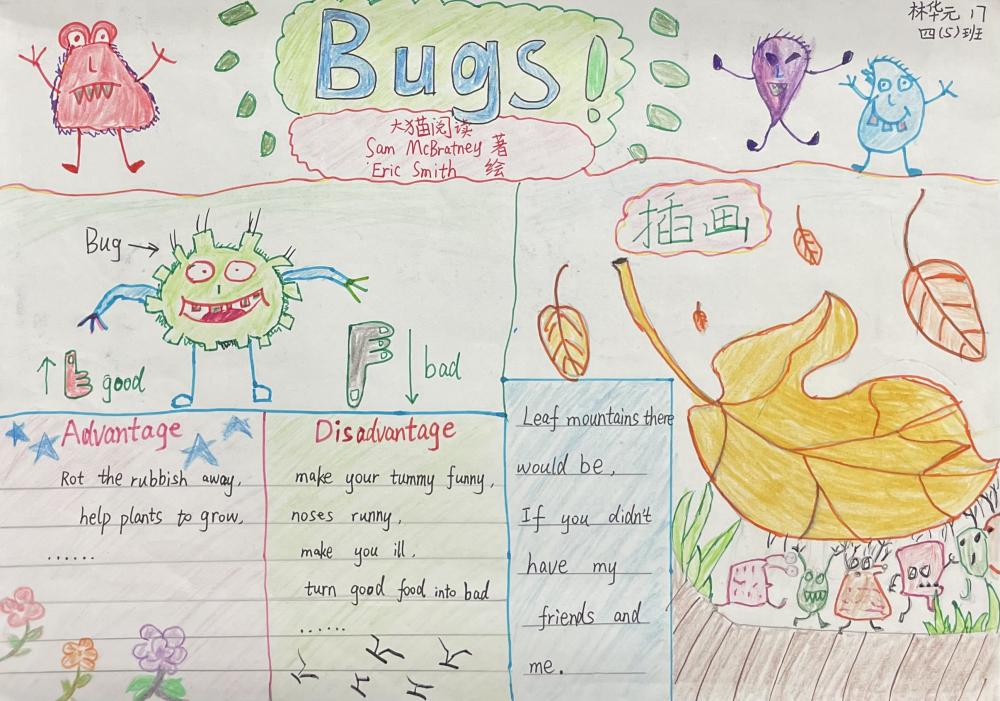 林华元 17
四(5)班
Bugs!
大猫阅读
Sam McBratney 著
Eric Smith 绘
Bug
good
bad
Advantage
Rot the rubbish away,
help plants to grow.
......
Disadvantage
make your tummy funny,
noses runny,
make you ill,
turn good food into bad
......
插画
Leaf mountains there
would be,
If you didn't
have my
friends and
me.